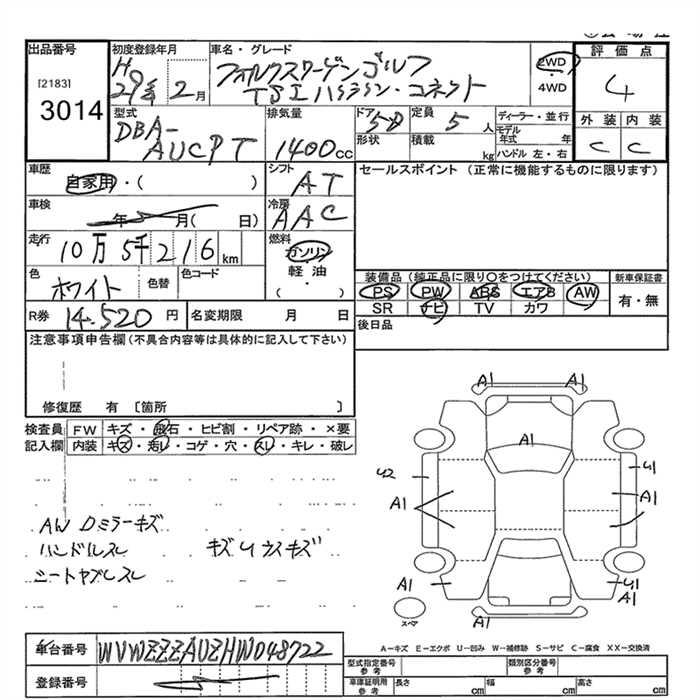 出品番号
[2183]
3014
初度登録年月
H
29年 2月
車名・グレード
フォルクスワーゲン ゴルフ
TSI ハイライン・コネクト
2WD
・
4WD
評価点
4
外装 内装
C C
型式
DBA-
AUCPT
排気量
1400cc
ドア 5D
形状
定員 5人
積載 kg
ディーラー・並行
モデル
年式 年
ハンドル 左・右
車歴
自家用・( )
シフト
AT
セールスポイント (正常に機能するものに限ります)
車検
年 月( 日)
冷房
AAC
走行
10万5千216km
燃料
ガソリン
軽油
・
( )
色
ホワイト
色替
色コード
装備品(純正品に限り○をつけてください)
PS PW ABS エアB AW
SR ナビ TV カワ
新車保証書
有・無
R券 14.520円
名変期限 月 日
後日品
注意事項申告欄(不具合内容等は具体的に記入して下さい)
修復歴 有 〔箇所 〕
検査員
記入欄
FW キズ・飛石・ヒビ割・リペア跡・×要
内装 キズ・汚レ・コゲ・穴・スレ・キレ・破レ
AW Dミラーキズ
ハンドルスレ キズUウスキズ
シートヤブレスレ
A1 A1
A1
U2 U1
A1 A1
A1 U1
A1
スペア
A-キズ E-エクボ U-凹み W-補修跡 S-サビ C-腐食 XX-交換済
車台番号 WVWZZZAUZHW048722
登録番号
型式指定番号
参考
類別区分番号
参考
車庫証明用
参考
長さ cm 幅 cm 高さ cm